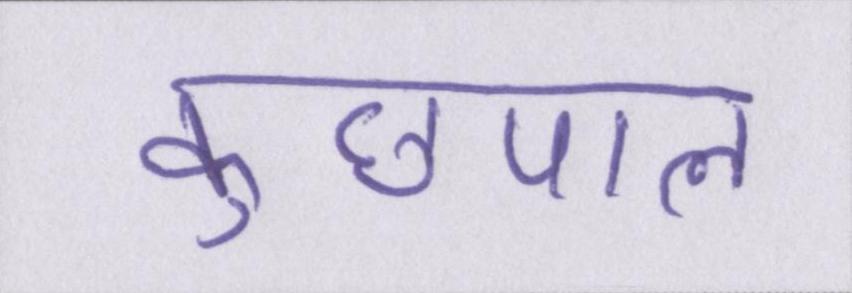 कुछपाल